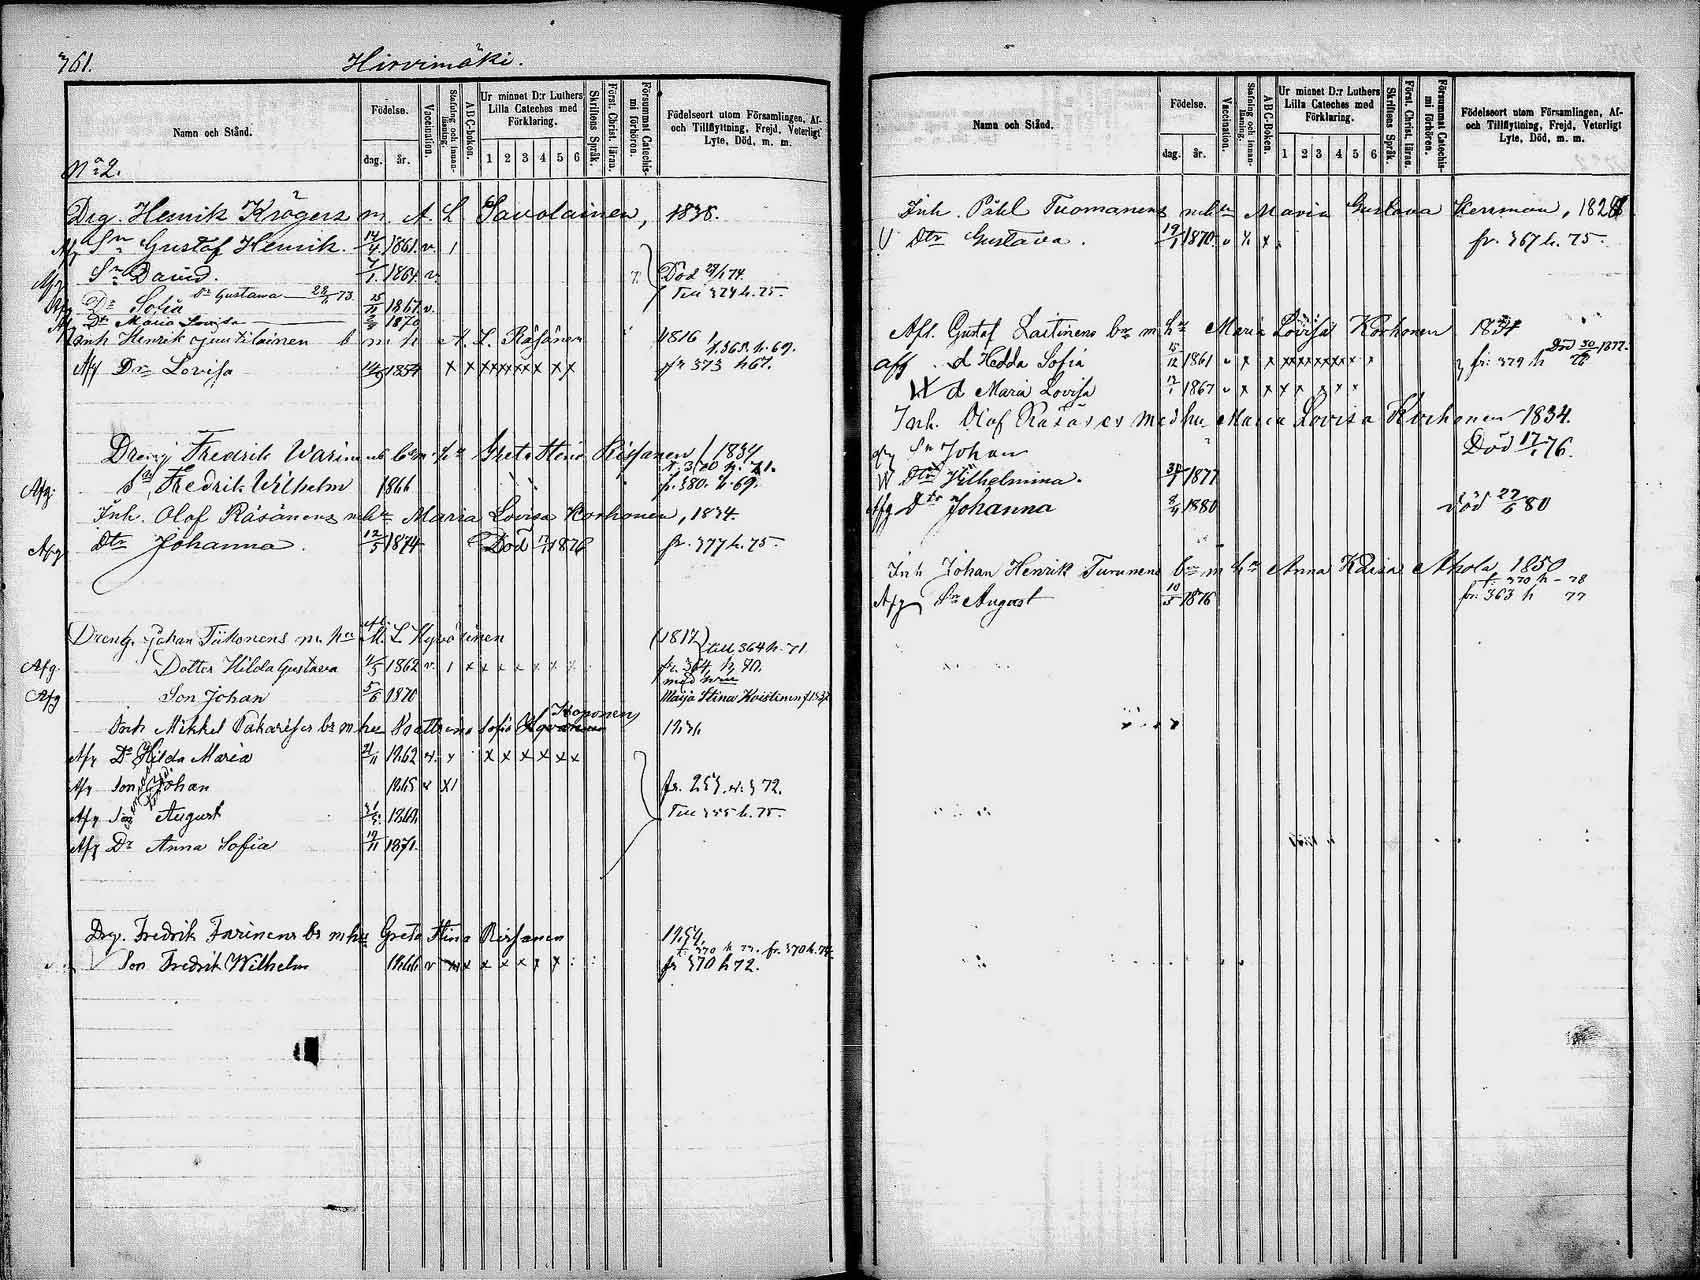 361. Hirvimäki.
Namn och Stånd.
Födelse.
dag. år.
Vaccination.
Stafning och innanläsning.
ABC-boken.
Ur minnet D:r Luthers Lilla Cateches med Förklaring.
1 2 3 4 5 6
Skriftens Språk.
Först. Christ. läran.
Försummat Catechismi förhören.
Födelseort utom Församlingen, Af- och Tillflyttning, Frejd, Veterligt Lyte, Död, m. m.
No 2.
Drg. Henrik Krögers m. A. L Savolainen, 1838.
Afg Sn Gustaf Henrik 14/4 1861 v. 1
Afg Sn David. 7/1 1864 v. Död 29/1 74.
Dr Gustava 28/6 73. Till 324 h. 75.
Afg Dr Sofia 25/11 1867 v.
Afg Dr Maria Lovisa 1870
Inh Henrik Juutilainen b m h A. L. Räsänen 1816 f. 365 h. 69.
Afg Dr Lovisa 1854 x x xxxxxx x xx fr 373 h 67.
Dreng Fredrik Warinens bn m hu Greta Stina Rissanen 1834
t. 370 h. 71.
Afg. Sn, Fredrik Wilhelm 1866 fr. 380. h. 69.
Inh. Olof Räsänens mhu Maria Lovisa Korhonen, 1834.
Afg Dtr Johanna. 12/5 1874 Död 17/1 1876 fr. 377 h. 75.
Dreng. Johan Tiikonens m. hu M. L Hyvärinen (1817) till 364 h. 71
Afg. Dotter Hilda Gustava 4/5 1862 v. 1 x x x x x x x fr. 364 h. 70.
med hu
Afg Son Johan 5/6 1870 Maija Stina Koistinen f. 1837
Inh Mikkel Pakarises bs m hu Kattrina Sofia Koponen 1836
Afg Dr Hilda Maria 21/11 1862 v. x x x x x x x
Afg Son Johan 1865 v x1 fr. 257. h. 72.
Afg Son August 1868 Till 355 h. 75.
Afg Dr Anna Sofia 19/11 1871.
Drg. Fredrik Farinens bs mhu Greta Stina Rissanen 1834.
t. 370 h 73. fr. 370 h. 74
Son Fredrik Wilhelm 1866 v x x x x x x x fr 370 h 72.
Namn och Stånd.
Födelse.
dag. år.
Vaccination.
Stafning och innanläsning.
ABC-Boken.
Ur minnet D:r Luthers Lilla Cateches med Förklaring.
1 2 3 4 5 6
Skriftens Språk.
Först. Christ. läran.
Försummat Catechismi förhören.
Födelseort utom Församlingen, Af- och Tillflyttning, Frejd, Veterligt Lyte, Död, m. m.
Inh. Påhl Tuomanens mhu Maria Gustava Herrman, 1828
V Dtr Gustava. 19/1 1870 v x x fr. 367 h. 75.
Afl. Gustaf Laitinens bn m hu Maria Lovisa Korhonen 1834
Död 30/12 1877.
afg d Hedda Sofia 15/12 1861 v x x xxxxxxxx x x fr. 379 h 76
W d Maria Lovisa 12/1 1867 v x x x x x x x
Inh. Olof Räsäses med hu Maria Lovisa Korhonen 1834.
afg Sn Johan Död 17/1 76.
W Dtr Wilhelmina. 30/7 1877
Afg dtr Johanna 8/4 1880 död 27/6 80
Inh Johan Henrik Turunens bn m hu Anna Kaisa Ahola 1850
t. 370 h - 78
Afg Sn August 10/5 1876 fr. 363 h 77